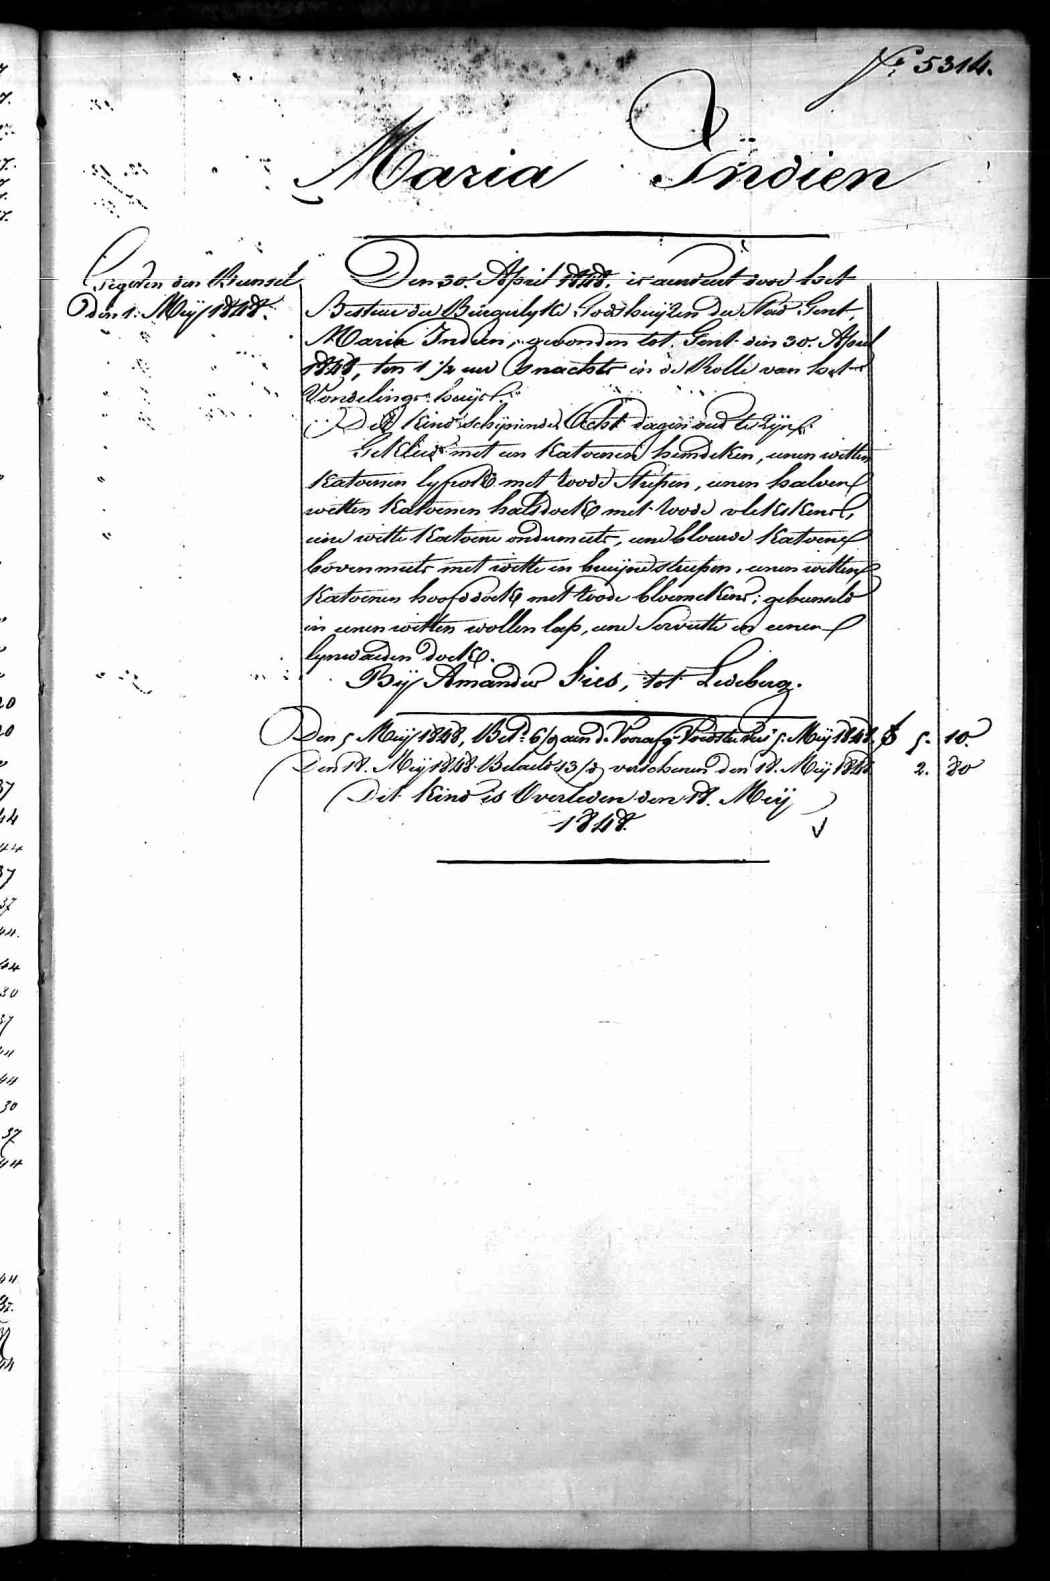 N.° 5314.
Maria Indien
Gegeven den Bunsel
den 1. Meij 1848.
Den 30. April 1848. is aenveert door het
Bestuer der Burgerlyke Godshuijzen der Stad Gent,
Maria Indien, gevonden tot Gent den 30. April
1848, ten 1 1/2 uer 's nachts in de Rolle van het
Vondelings-huijs.
Dit kind schijnende Acht dagen oud te zijn.
Gekleed met een katoenen hemdeken, eenen witten
katoenen lyfrok met roode streepen, eenen halven
witten katoenen halsdoek met roode vlekskens,
eene witte katoene ondermuts, eene blauwe katoene
bovenmuts met witte en bruijne streepen, eenen witten
katoenen hoofddoek met roode bloemekens; gebunseld
in eenen witten wollen lap, eene Serviette en eenen
lynwaeden doek.
Bij Amandus Sies, tot Ledeberg.
Den 5 Meij 1848, Bet. 6/9 aen de Voorafg. Voedster tot 5. Meij 1848. 5. 10.
Den 18. Meij 1848 Betaeld 13/d verschenen den 18. Meij 1848 2. 80
Dit kind is Overleden den 18. Meij
1848.
20
20
37
44
44
37
37
44.
44
30
37
44
44
30
37
44
44
37.
44